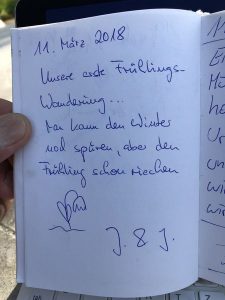 11. März 2018
Unsere erste Frühlings-
Wanderung...
Man kann den Winter
noch spüren, aber den
Frühling schon riechen
J. & J.